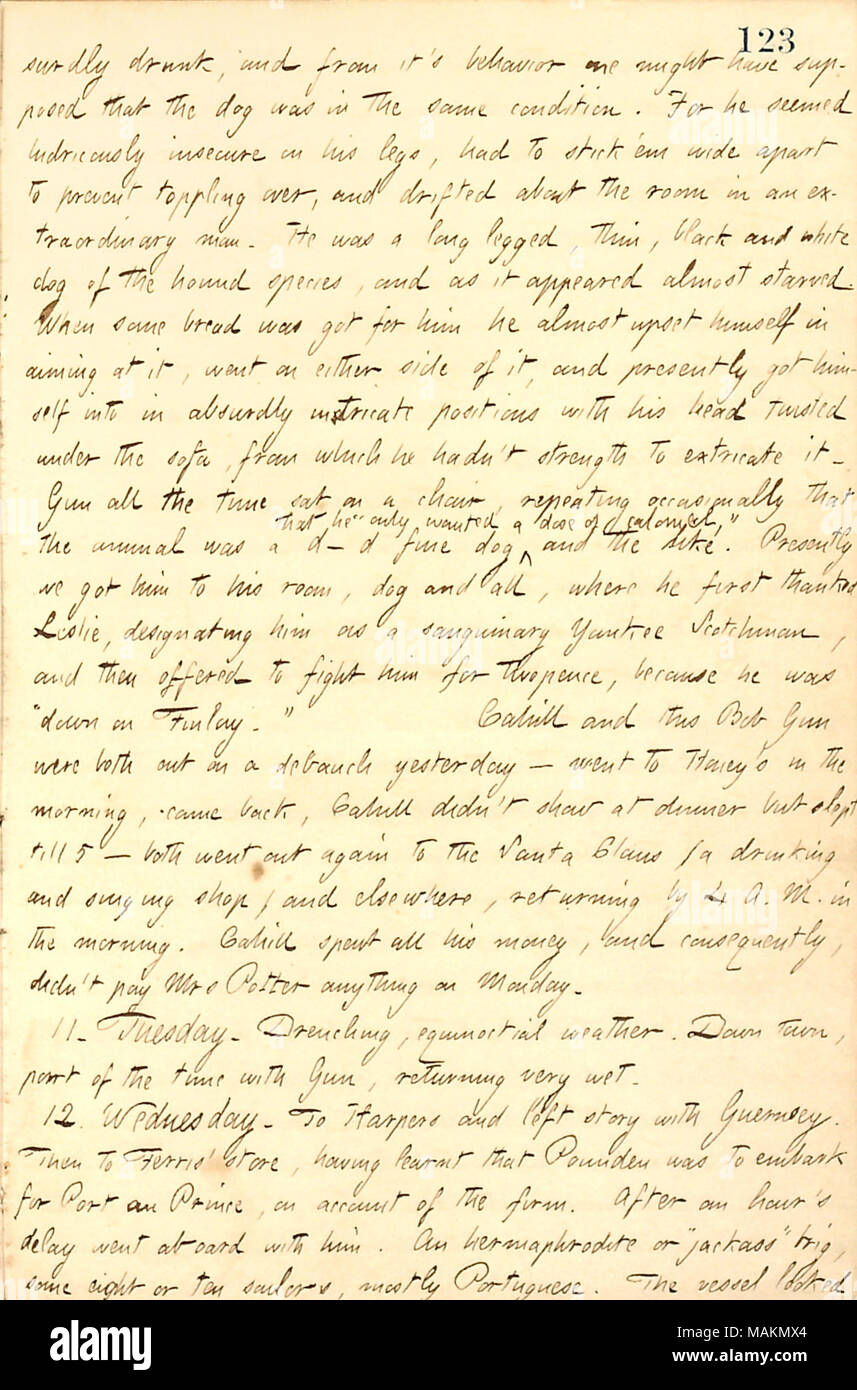 123
surdly drunk, and from it's behavior one might have sup-
posed that the dog was in the same condition. For he seemed
ludricously insecure on his legs, had to stick 'em wide apart
to prevent toppling over, and drifted about the room in an ex-
traordinary man. He was a long legged, thin, black and white
dog of the hound species, and as it appeared almost starved.
When some bread was got for him he almost upset himself in
aiming at it, went on either side of it, and presently got him-
self into in absurdly intricate positions with his head twisted
under the sofa, from which he hadn't strength to extricate it.
Gun all the time sat on a chair, repeating occasionally that
that he "only wanted a dose of calomel,"
the animal was a d—d fine dog, and the like. Presently
we got him to his room, dog and all, where he first thanked
Leslie, designating him as a sanguinary Yankee Scotchman,
and then offered to fight him for twopence, because he was
"down on Finlay." Cahill and this Bob Gun
were both out on a debauch yesterday — went to Honey's in the
morning, came back, Cahill didn't show at dinner but slept
till 5 — both went out again to the Santa Claus (a drinking
and singing shop) and elsewhere, returning by 4 A. M. in
the morning. Cahill spent all his money, and consequently,
didn't pay Mrs Potter anything on Monday.
11. Tuesday. Drenching, equinoctial weather. Down town,
part of the time with Gun, returning very wet.
12. Wednesday. To Harpers and left story with Guernsey.
Then to Ferris' store, having learnt that Pounden was to embark
for Port au Prince, on account of the firm. After an hour's
delay went aboard with him. An hermaphrodite or "jackass" brig,
some eight or ten sailors, mostly Portuguese. The vessel looked
alamy
Image ID: MAKMX4
www.alamy.com